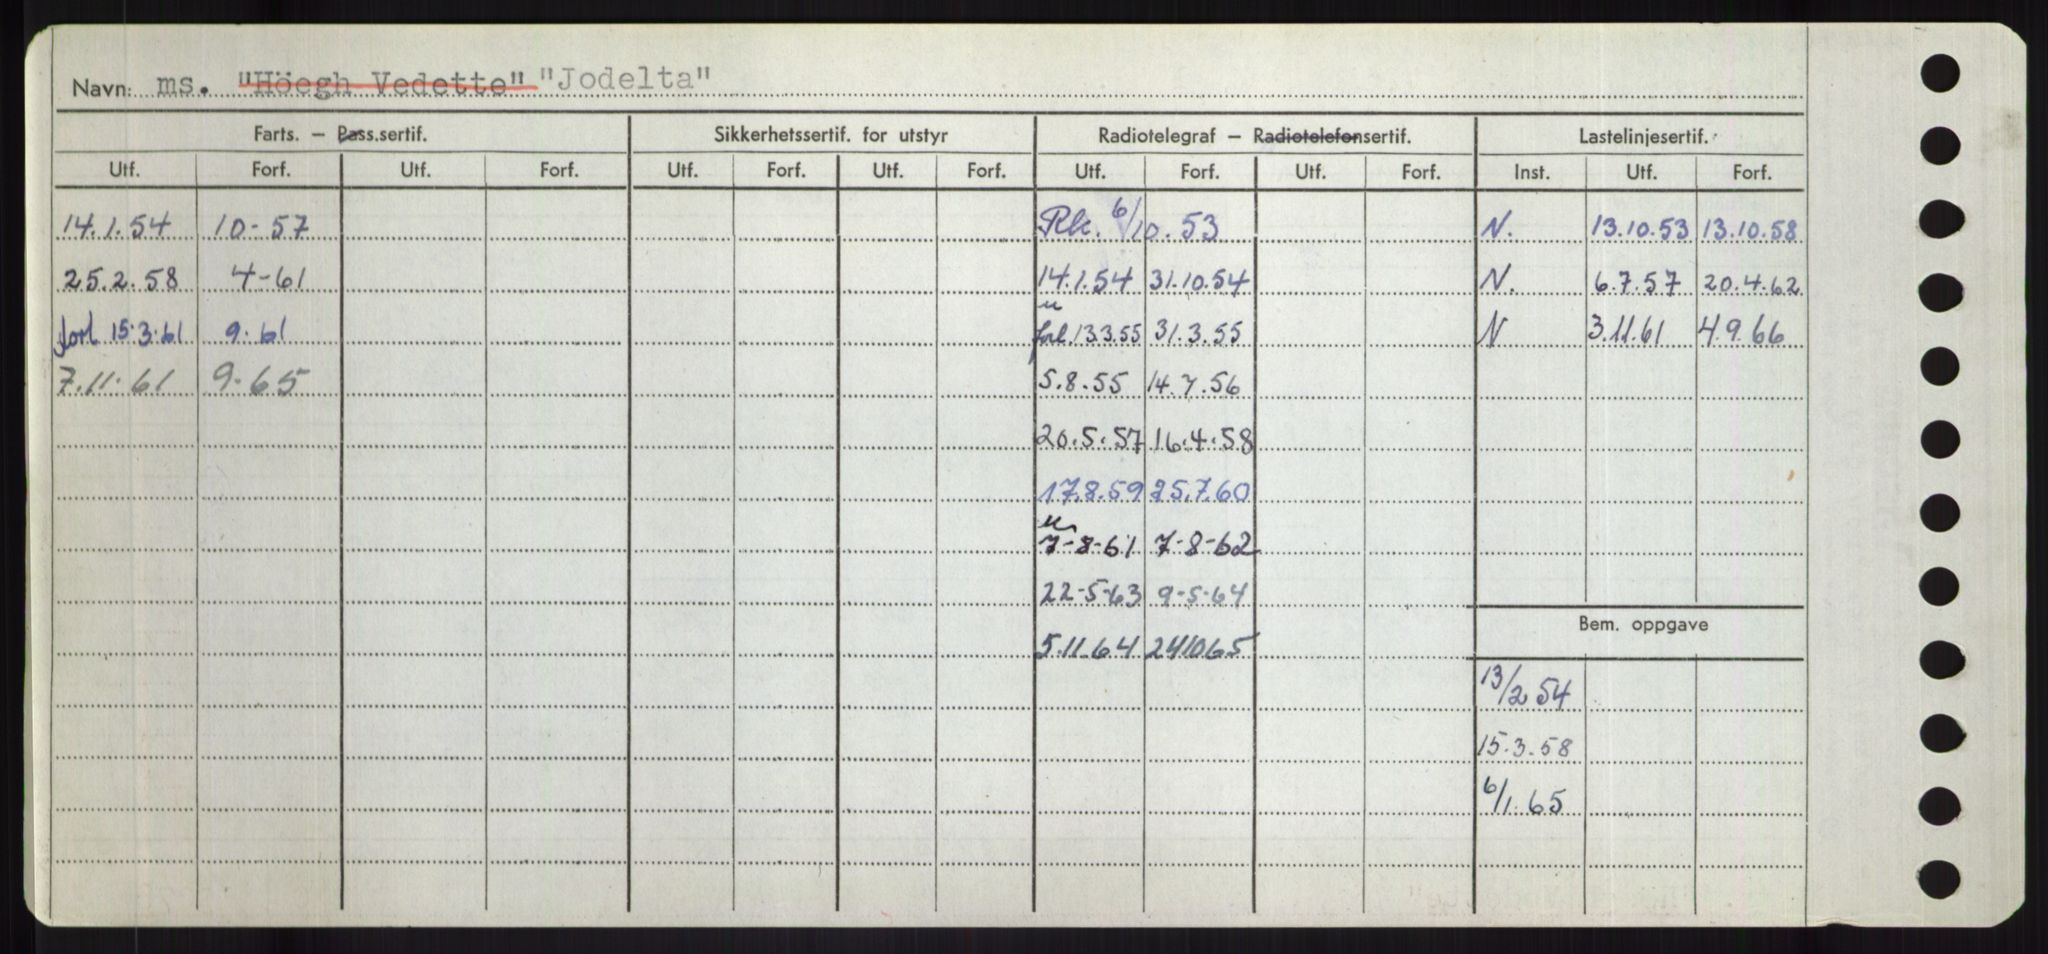 Navn: ms. "Höegh Vedette" "Jodelta"
Farts. — Pass.sertif. Sikkerhetssertif. for utstyr Radiotelegraf — Radiotelefonsertif. Lastelinjesertif.
Utf. Forf. Utf. Forf. Utf. Forf. Utf. Forf. Utf. Forf. Utf. Forf. Inst. Utf. Forf.
14.1.54 10-57 Rk. 6/10.53 N. 13.10.53 13.10.58
25.2.58 4-61 14.1.54 31.10.54 N. 6.7.57 20.4.62
forl 15.3.61 9.61 forl. 13.3.55 31.3.55 N 3.11.61 4.9.66
7.11.61 9.65 5.8.55 14.7.56
20.5.57 16.4.58
17.8.59 25.7.60
7-8-61 7-8-62
22-5-63 9-5-64
Bem. oppgave
5.11.64 241065
13/2 54
15.3.58
6/1.65